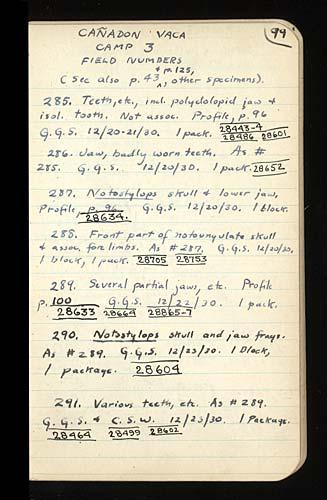 99
CAÑADON VACA
CAMP 3
FIELD NUMBERS
& p. 125,
(See also p. 43, other specimens).
285. Teeth, etc., incl. polydolopid jaw &
isol. tooth. Not assoc. Profile, p. 96
G.G.S. 12/20-21/30. 1 pack. 28443-4
28486 28601
286. Jaw, badly worn teeth. As #
285. G.G.S. 12/20/30. 1 pack. 28652
287. Notostylops skull & lower jaw,
Profile, p. 96. G.G.S. 12/20/30. 1 block.
28634.
288. Front part of notoungulate skull
& assoc. forelimbs. As #287, G.G.S. 12/20/30.
1 block, 1 pack. 28705 28753
289. Several partial jaws, etc. Profile
p. 100 G.G.S. 12/22/30. 1 pack.
28633 28664 28865-7
290. Notostylops skull and jaw frags.
As #289. G.G.S. 12/23/30. 1 Block,
1 package. 28604
291. Various teeth, etc. As #289.
G.G.S. & C.S.W. 12/23/30. 1 Package.
28464 28499 28602